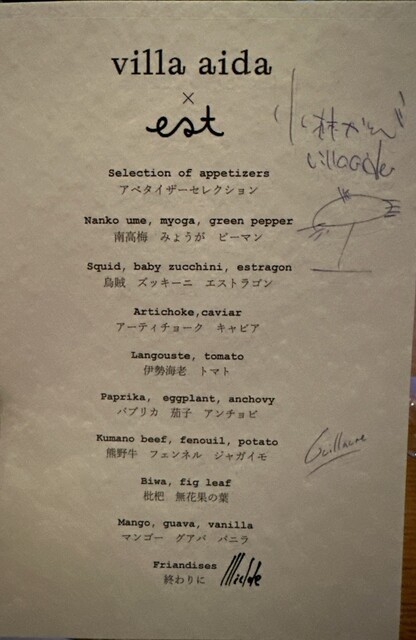 villa aida
×
est
小林かんじ
villa aida
Selection of appetizers
アペタイザーセレクション
Nanko ume, myoga, green pepper
南高梅 みょうが ピーマン
Squid, baby zucchini, estragon
烏賊 ズッキーニ エストラゴン
Artichoke,caviar
アーティチョーク キャビア
Langouste, tomato
伊勢海老 トマト
Paprika, eggplant, anchovy
パプリカ 茄子 アンチョビ
Kumano beef, fenouil, potato
熊野牛 フェンネル ジャガイモ
Guillaume
Biwa, fig leaf
枇杷 無花果の葉
Mango, guava, vanilla
マンゴー グアバ バニラ
Friandises
終わりに